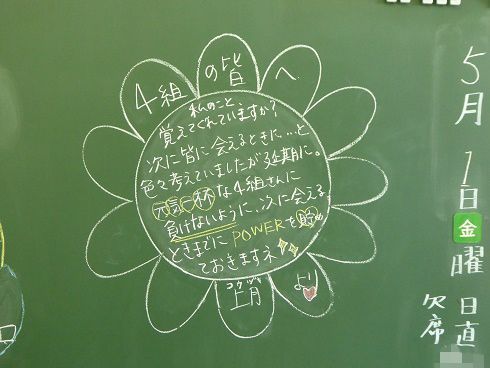 4組の皆へ
私のこと、
覚えてくれていますか?
次に皆に会えるときに…と
色々考えていましたが延期に。
元気一杯な4組さんに
負けないように、次に会える
ときまでにPOWERを貯め
ておきますネ
コウヅキ
上月より
5月1日金曜
日直
欠席